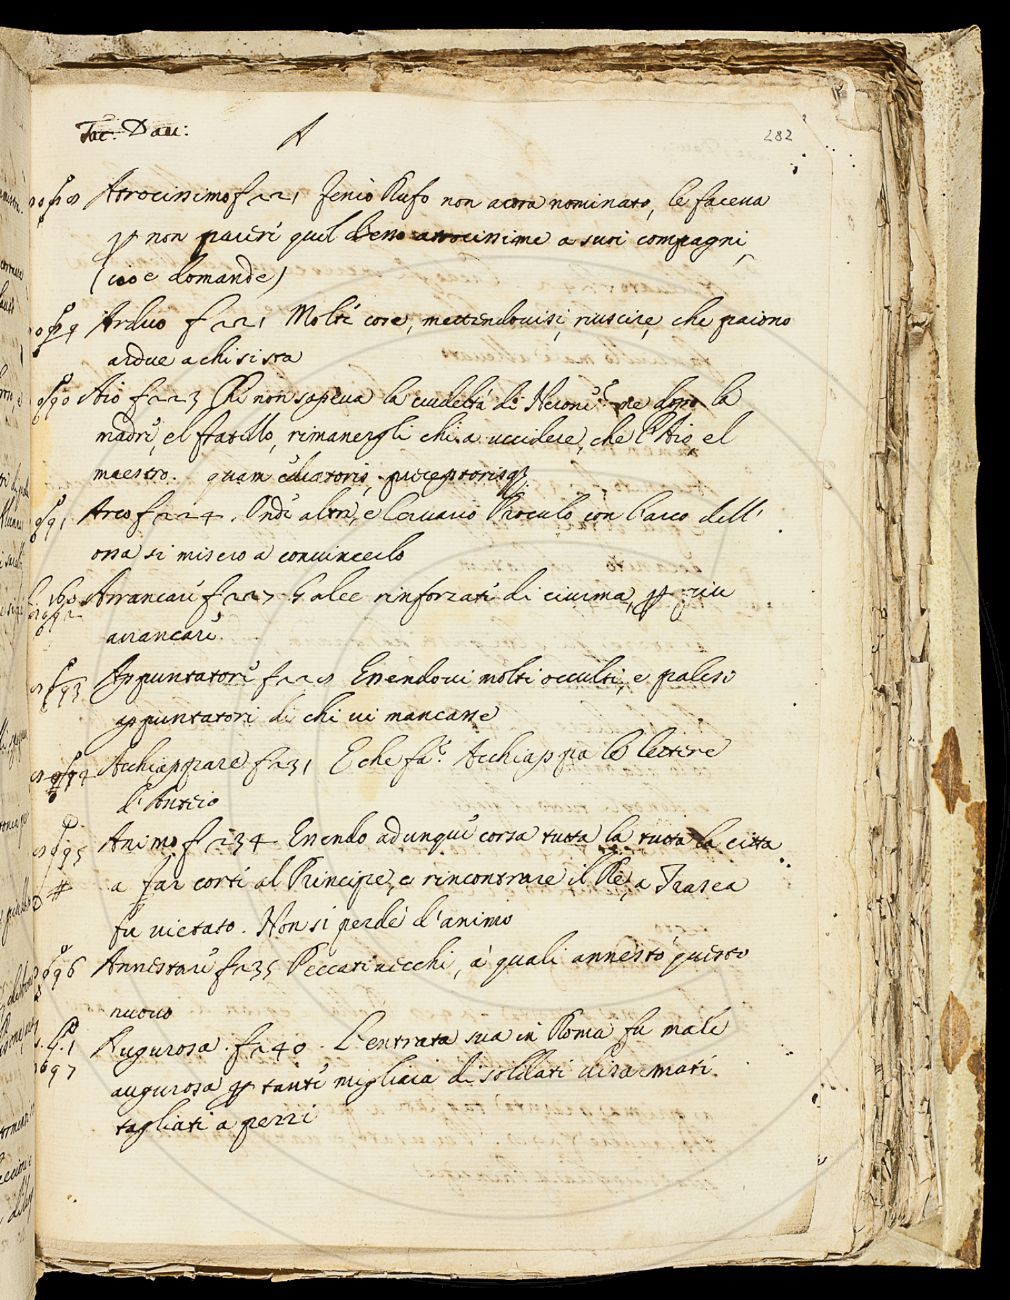 Tac: Dav:
A
282
Atrocissimo f 221 Fenio Rufo non ancora nominato, le faceva
non parere quel desso atrocissime a suoi compagni,
(cioè domande)
Arduo f 221 Molte cose, mettendovisi, riuscire, che paiono
ardue a chi si sta
Aio f 223 Chi non sapeva la crudeltà di Nerone? ne dopo la
madre, e'l fratello, rimanergli chi a uccidere, che l'Aio e'l
maestro. quam educatoris, praeceptorisq
Arco f 224. Onde altri, e Cervario Proculo con l'arco dell'
ossa si misero a convincerlo
Arrancare f 227 Galee rinforzate di ciurma, più
arrancare
Appuntatori f 228 Essendovi molti occulti, e palesi
appuntatori di chi vi mancasse
Acchiappare f 231 E che fa? Acchiappa le lettere
d'Anteio
Animo f 234 Essendo adunque corsa tutta la tutta la citta
a far corte al Principe, e rincontrare il Re, a Trasea
fu vietato. Non si perde d'animo
Annestare f 235 Peccati vecchi, a quali annestò questo
nuovo
Augurosa. f 240. L'entrata sua in Roma fu male
augurosa tante migliaia di soldati disarmati
tagliati a pezzi